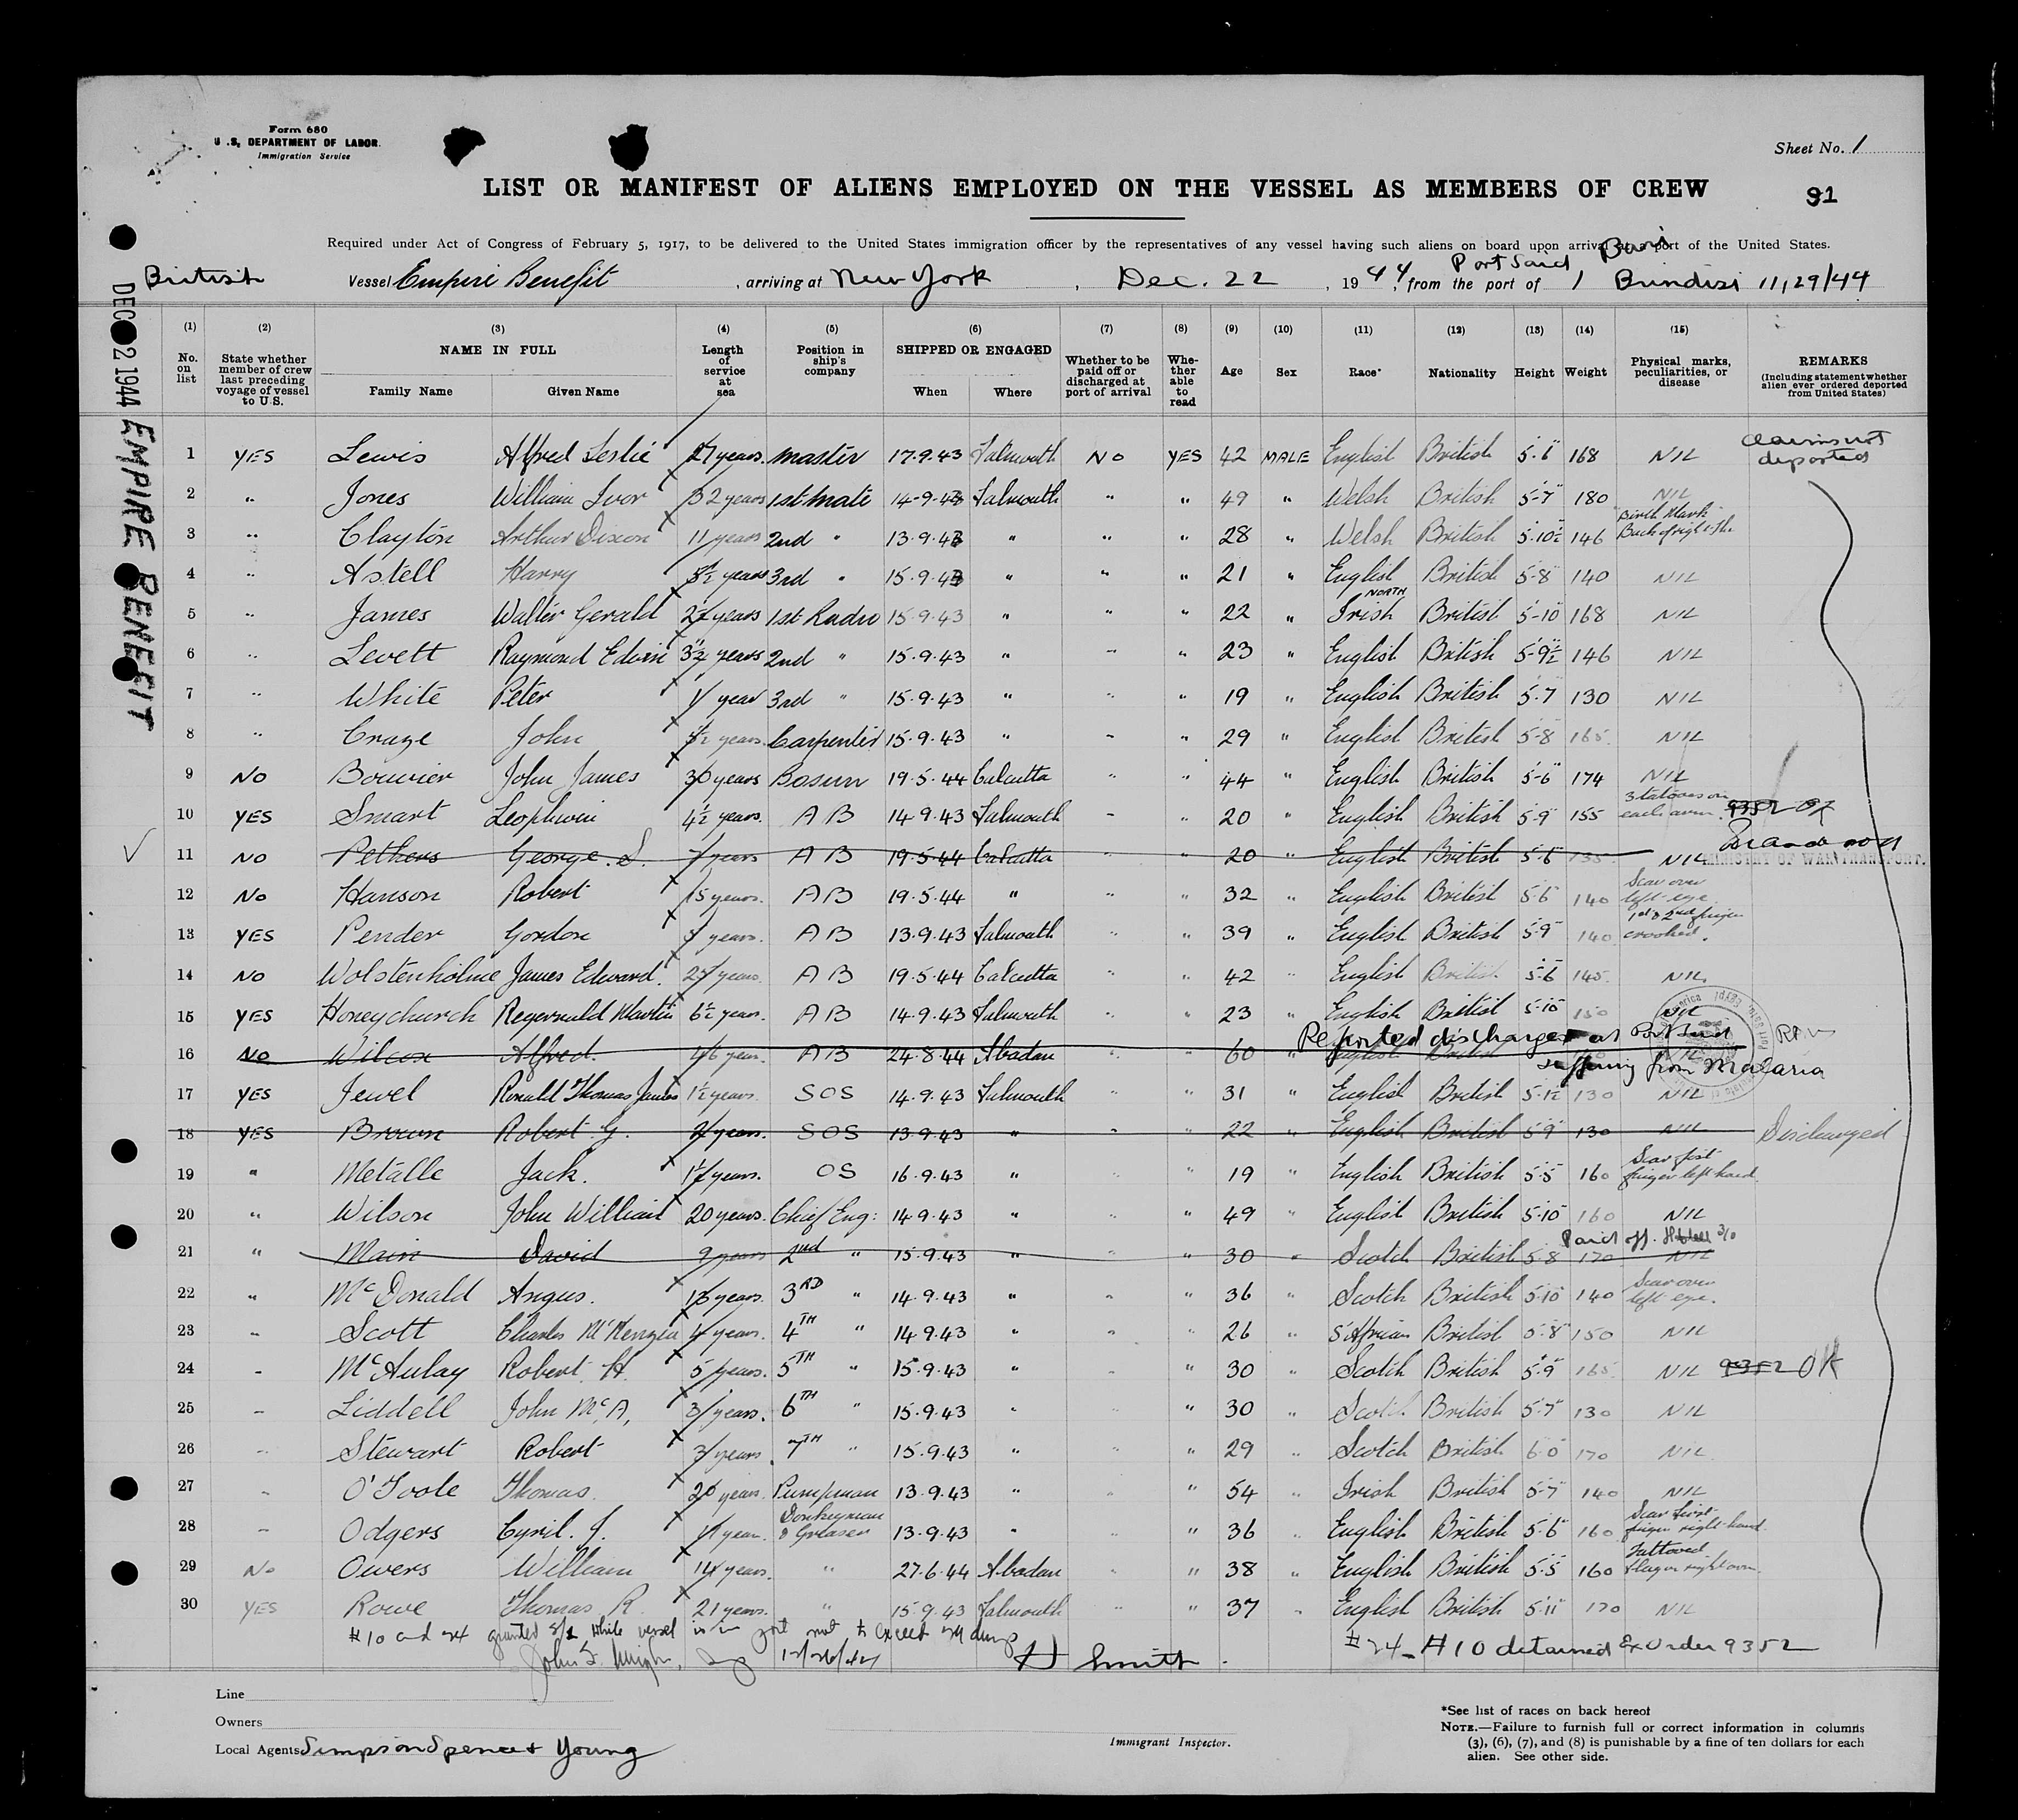 Form 680
U.S. DEPARTMENT OF LABOR
Immigration Service
Sheet No. 1
LIST OR MANIFEST OF ALIENS EMPLOYED ON THE VESSEL AS MEMBERS OF CREW
91
Required under Act of Congress of February 5, 1917, to be delivered to the United States immigration officer by the representatives of any vessel having such aliens on board upon arrival at a port of the United States.
British Vessel Empire Benefit, arriving at New York, Dec. 22, 1944, from the port of Port Said / Bari Brindisi 11/29/44
DEC 2 1944 EMPIRE BENEFIT
(1) (2) (3) (4) (5) (6) (7) (8) (9) (10) (11) (12) (13) (14) (15)
No. on list State whether member of crew last preceding voyage of vessel to U.S. NAME IN FULL Family Name Given Name Length of service at sea Position in ship's company SHIPPED OR ENGAGED When Where Whether to be paid off or discharged at port of arrival Whether able to read Age Sex Race* Nationality Height Weight Physical marks, peculiarities, or disease REMARKS (Including statement whether alien ever ordered deported from United States)
1 YES Lewis Alfred Leslie 27 years master 17.9.43 Falmouth NO YES 42 MALE English British 5-6 168 NIL claims not deported
2 " Jones William Ivor 32 years 1st mate 14-9-43 Falmouth " " 49 " Welsh British 5-7 180 NIL
3 " Clayton Arthur Dixon 11 years 2nd " 13.9.43 " " " 28 " Welsh British 5-10½ 146 Birth Mark Back of right
4 " Astell Harry years 3rd " 15.9.43 " " " 21 " English British 5-8 140 NIL
5 " James Walter Gerald years 1st Radio 15.9.43 " " " 22 " NORTH Irish British 5-10 168 NIL
6 " Levett Raymond Edwin 3½ years 2nd " 15.9.43 " " " 23 " English British 5-9½ 146 NIL
7 " White Peter 1 year 3rd " 15.9.43 " " " 19 " English British 5-7 130 NIL
8 " Craze John years Carpenter 15.9.43 " " " 29 " English British 5-8 165 NIL
9 NO Bouvier John James 30 years Bosun 19.5.44 Calcutta " " 44 " English British 5-6 174 NIL
10 YES Smart Leophwin 4½ years. AB 14.9.43 Falmouth " " 20 " English British 5-9 155 3 tatooes on each arm. 9352 OK
11 NO Pethers George. S. years AB 19.5.44 Calcutta 20 " English British 5-6 135 NIL MINISTRY OF WAR TRANSPORT.
12 No Hanson Robert 15 years. AB 19.5.44 " " " 32 " English British 5-6 140 Scar over left eye
13 YES Pender Gordon years. AB 13.9.43 Falmouth " " 39 " English British 5-9 140 1st & 2nd finger crooked.
14 NO Wolstenholme James Edward. years. AB 19.5.44 Calcutta " " 42 " English British 5-6 145 NIL
15 YES Honeychurch Regernald Martin 6½ years. AB 14.9.43 Falmouth " " 23 " English British 5-10 150 NIL
Reported discharged at Port Said
16 No Wilcox Alfred. 46 years. AB 24.8.44 Abadan " 60 " English suffering from Malaria
17 YES Jewel Ronald Thomas James 1½ years. SOS 14.9.43 Falmouth " " 31 " English British 130 NIL
18 YES Brown Robert G. years. SOS 13.9.43 " " " 22 " English British 5-9 130 NIL Discharged
19 " Metalle Jack. years. OS 16.9.43 " " " 19 " English British 5-5 160 Scar first finger left hand
20 " Wilson John William 20 years. Chief Eng: 14.9.43 " " " 49 " English British 5-10 160 NIL
21 " Main David 9 years 2nd " 15.9.43 " " " 30 " Scotch British 5-8 170 NIL Paid off.
22 " McDonald Angus. years. 3RD " 14.9.43 " " " 36 " Scotch British 5-10 140 Scar over left eye.
23 " Scott Charles McKenzie 4 years. 4TH " 14.9.43 " " 26 " S'African British 5-8 150 NIL
24 " McAulay Robert H. 5 years. 5TH " 15.9.43 " " " 30 " Scotch British 5-9 165 NIL 9352 OK
25 " Liddell John McA, 3 years. 6TH " 15.9.43 " " " 30 " Scotch British 5-7 130 NIL
26 " Stewart Robert 3 years. 7TH " 15.9.43 " " " 29 " Scotch British 6-0 170 NIL
27 " O'Toole Thomas. 20 years. Pumpman 13.9.43 " " " 54 " Irish British 5-7 140 NIL
28 " Odgers Cyril. J. 1 year. Donkeyman & Greaser 13.9.43 " " " 36 " English British 5-6 160 Scar first finger right hand.
29 No Owers William 14 years. " 27.6.44 Abadan " " 38 " English British 5-5 160 Tattoed right arm.
30 YES Rowe Thomas R. 21 years. " 15.9.43 Falmouth " " 37 " English British 5-11 170 NIL
#10 and 24 granted S/L while vessel is in port not to exceed 29 days
12/26/44
H Smith
#24 - #10 detained Ex Order 9352
Line
Owners
Local Agents Simpson Spence & Young
Immigrant Inspector.
*See list of races on back hereof
NOTE.—Failure to furnish full or correct information in columns (3), (6), (7), and (8) is punishable by a fine of ten dollars for each alien. See other side.